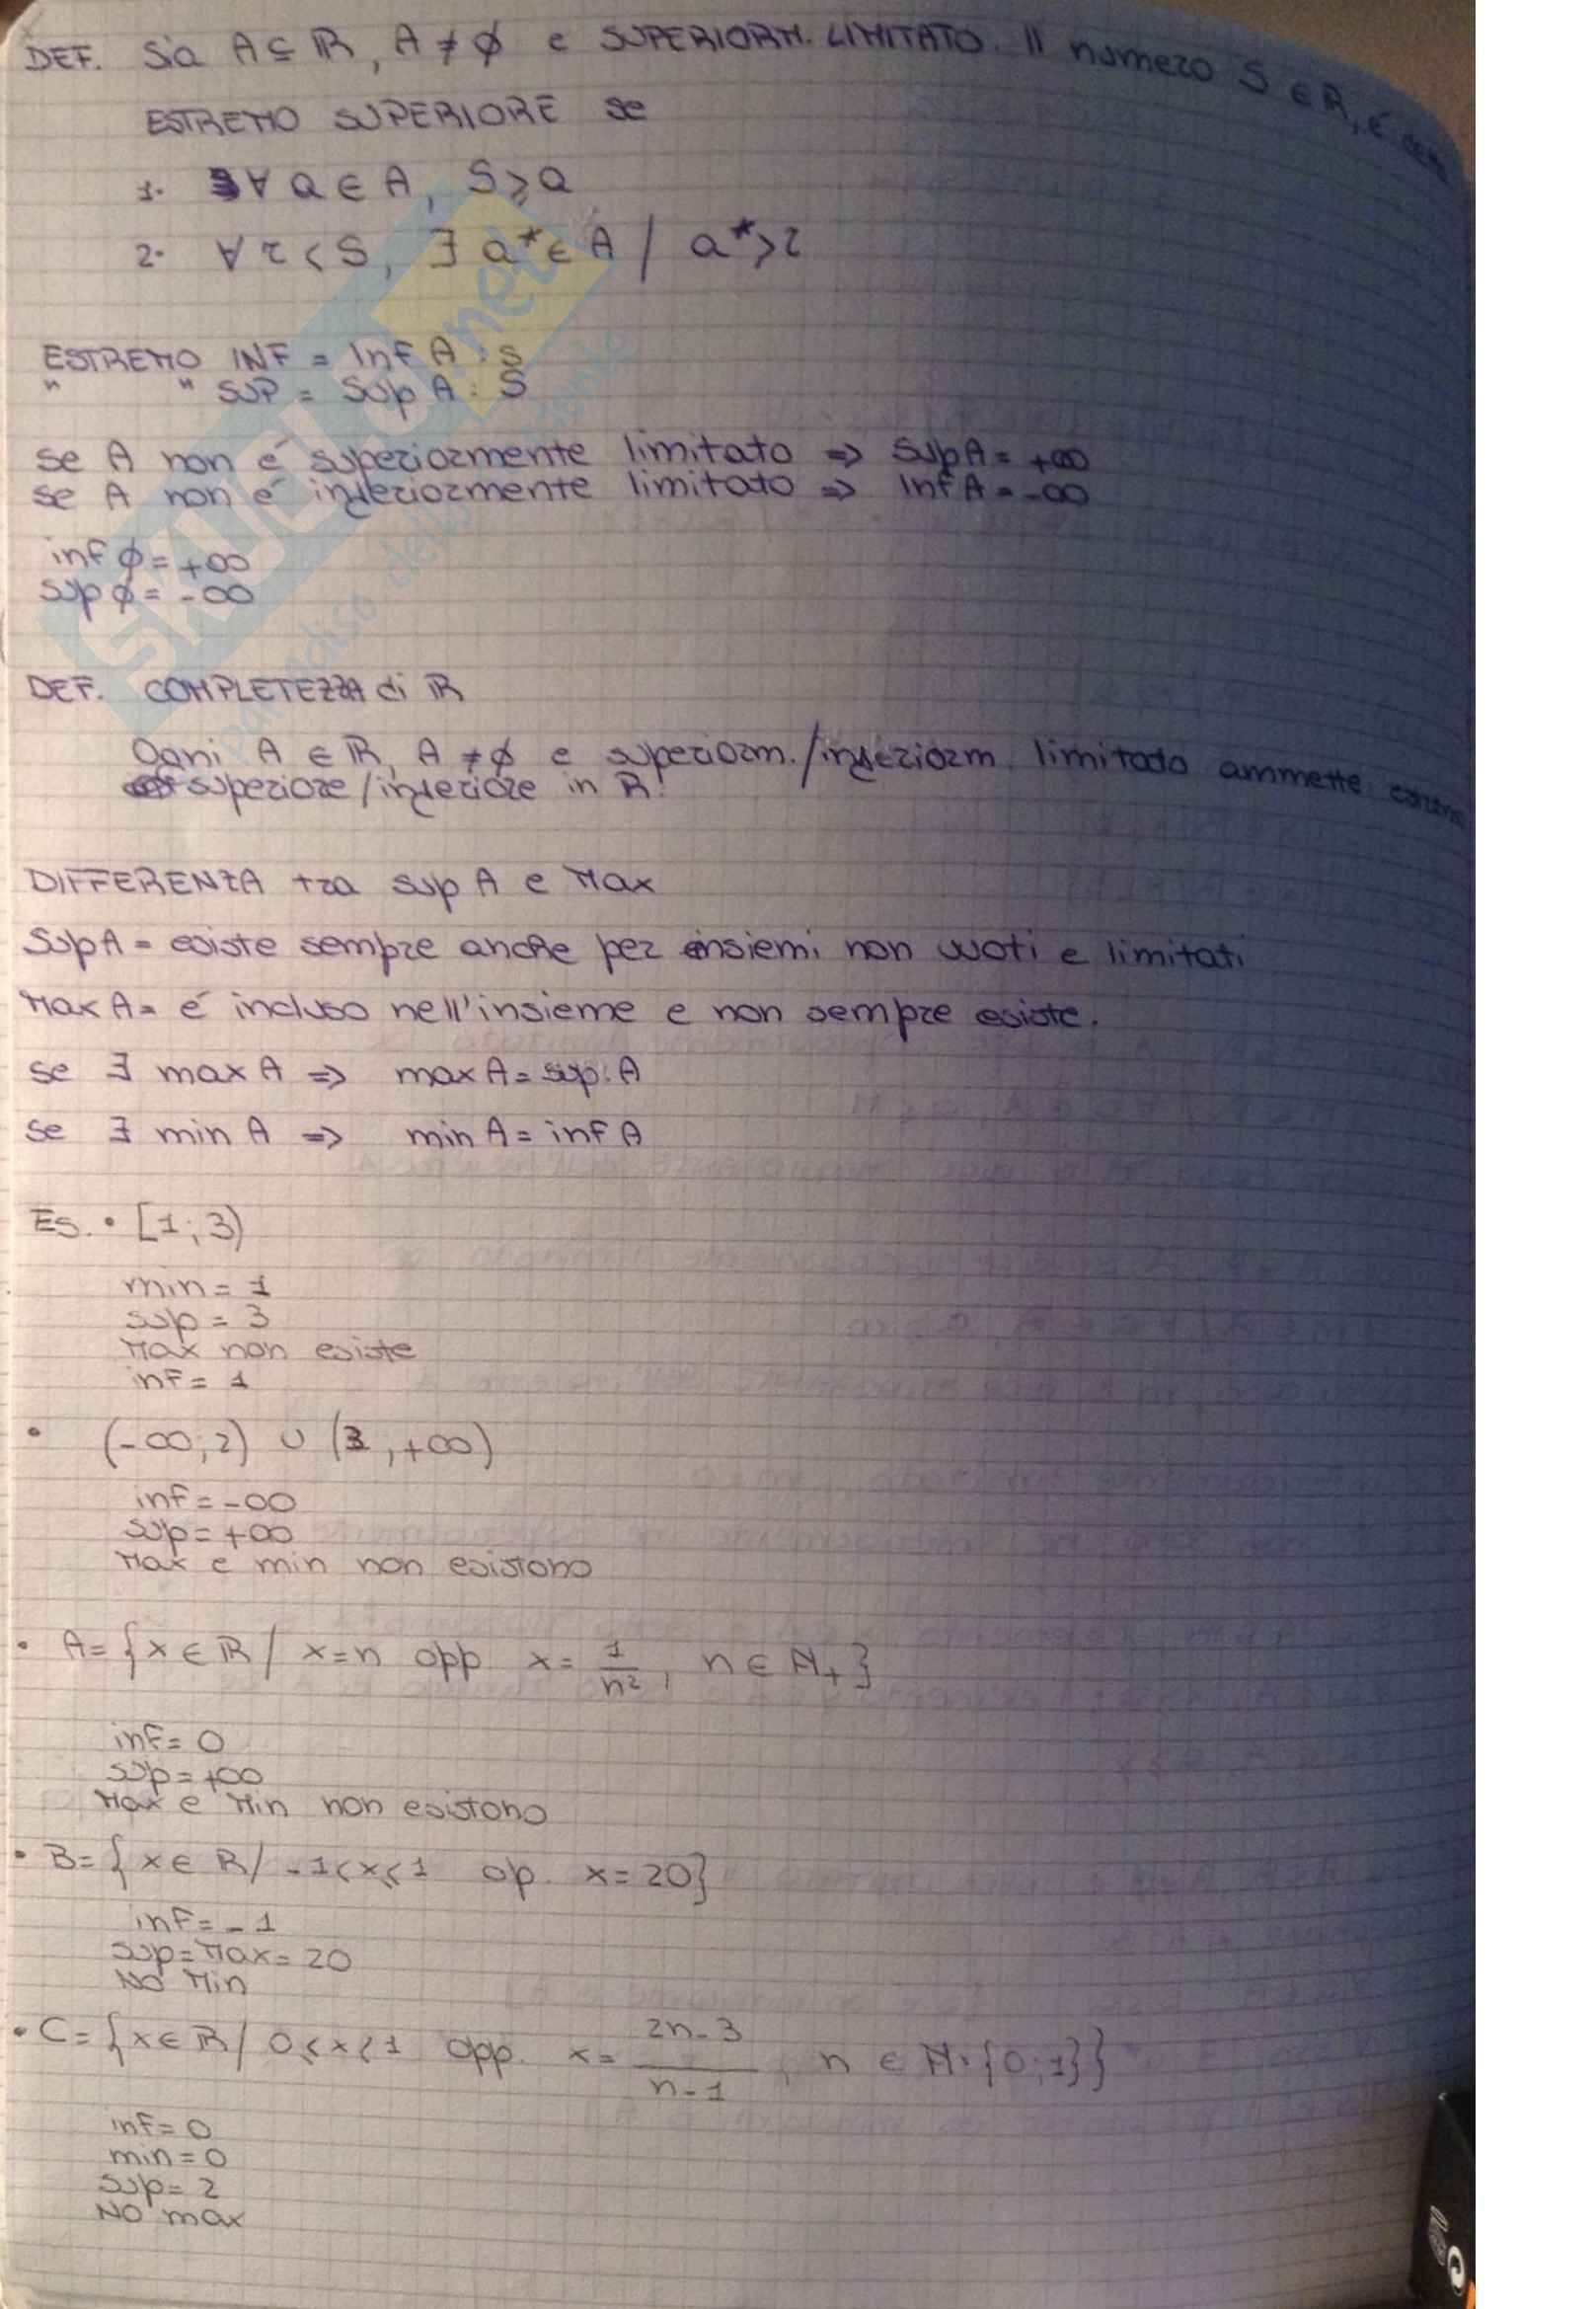 DEF. Sia A ⊆ ℝ, A ≠ ∅ e SUPERIORM. LIMITATO. Il numero S ∈ ℝ, é
ESTREMO SUPERIORE se
1. ∀ a ∈ A, S ⩾ a
2. ∀ r < S, ∃ a* ∈ A / a* > r
ESTREMO INF = Inf A : s
" " SUP = Sup A : S
se A non é superiormente limitato ⇒ Sup A = +∞
se A non é inferiormente limitato ⇒ Inf A = -∞
inf ∅ = +∞
sup ∅ = -∞
DEF. COMPLETEZZA di ℝ
Ogni A ∈ ℝ, A ≠ ∅ e superiorm./inferiorm. limitato ammette estremo
superiore/inferiore in ℝ.
DIFFERENZA tra sup A e Max
Sup A = esiste sempre anche per insiemi non vuoti e limitati
Max A = é incluso nell'insieme e non sempre esiste.
se ∃ max A ⇒ max A = sup. A
se ∃ min A ⇒ min A = inf A
Es. • [1; 3)
min = 1
sup = 3
Max non esiste
inf = 1
• (-∞; 2) ∪ (3, +∞)
inf = -∞
sup = +∞
Max e min non esistono
• A = {x ∈ ℝ / x = n opp. x = 1/n², n ∈ ℕ₊}
inf = 0
sup = +∞
Max e Min non esistono
• B = {x ∈ ℝ / -1 < x ⩽ 1 op. x = 20}
inf = -1
sup = Max = 20
NO Min
• C = {x ∈ ℝ / 0 ⩽ x < 1 opp. x = (2n-3)/(n-1), n ∈ ℕ \ {0; 1}}
inf = 0
min = 0
sup = 2
NO max